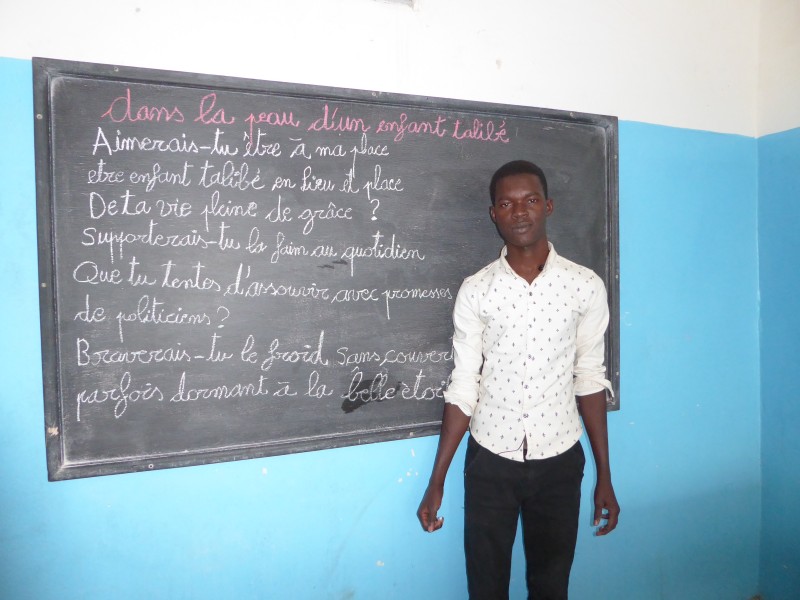 dans la peau d'un enfant talibé
Aimerais-tu être à ma place
etre enfant talibé en lieu et place
De ta vie pleine de grâce ?
Supporterais-tu la faim au quotidien
Que tu tentes d'assouvir avec promesses
de politiciens ?
Braverais-tu le froid sans couver
parfois dormant à la belle etoi